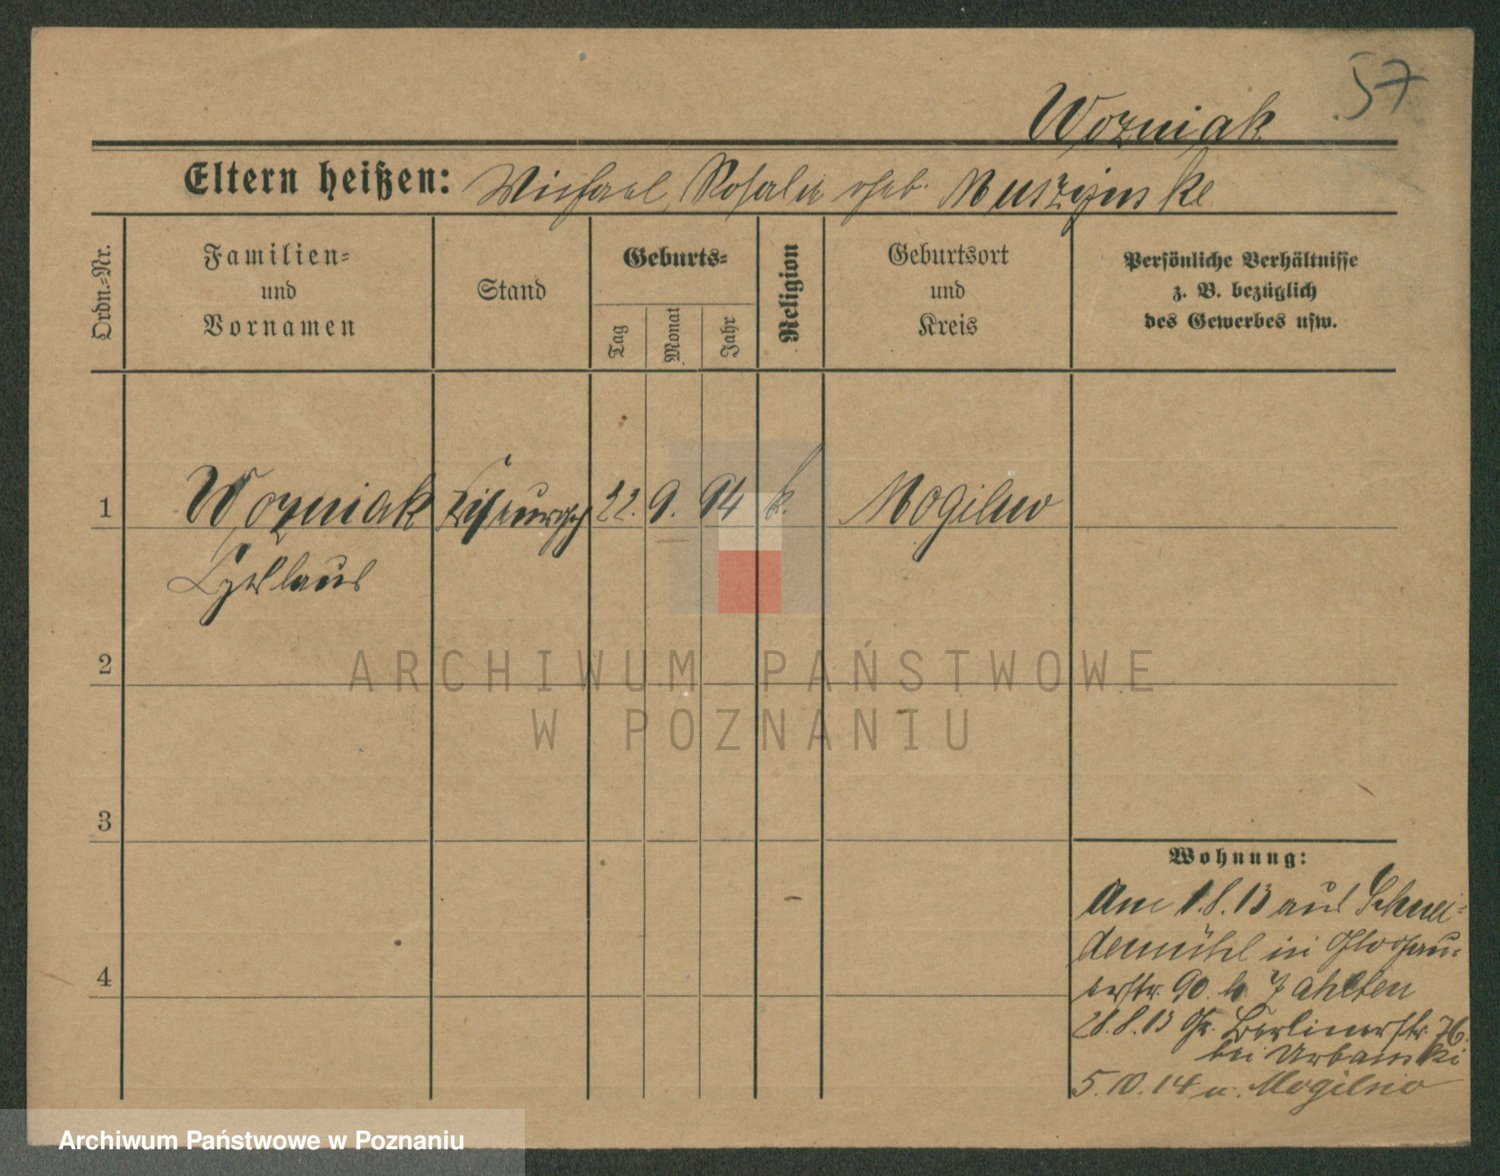 57
Wozniak
Eltern heißen: Michael, Rosalie geb. Muszynske
Ordn.-Nr.
Familien-
und
Vornamen
Stand
Geburts-
Tag
Monat
Jahr
Religion
Geburtsort
und
Kreis
Persönliche Verhältnisse
z. B. bezüglich
des Gewerbes usw.
1 Wozniak 22. 9. 94 k. Mogilno
2
3
4
ARCHIWUM PAŃSTWOWE
W POZNANIU
Wohnung:
Am 1.8.13 aus Schnei-
demühl in Glogau-
erstr. 90. b.
28.8.13 Gr. Berlinerstr. 76.
bei Urbanski
5.10.14 n. Mogilno
Archiwum Państwowe w Poznaniu